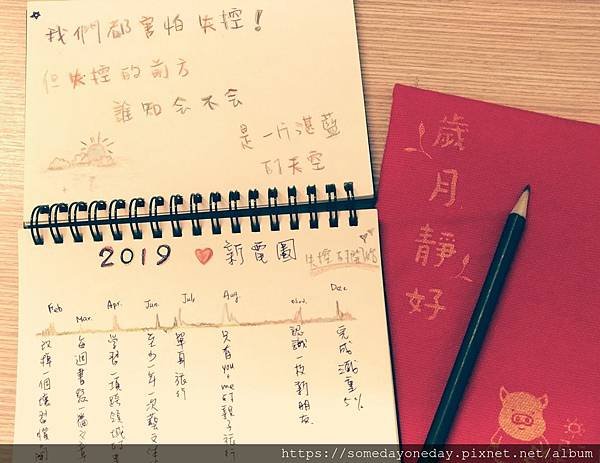 我們都害怕失控！
但失控的前方
誰知会不会
是一片湛藍
的天空
2019 ♥ 新電圖
失控的
Feb Mar. Apr. Jun. Jul. Aug. Dec.
改掉一個壞習慣
每週書寫一篇文章
學習一項跨領域
至少一年一次藝文
單身旅行
只有you & me的親子旅行
認識一枚新朋友
完成減重5%
歲月靜好
https://somedayoneday.pixnet.net/album